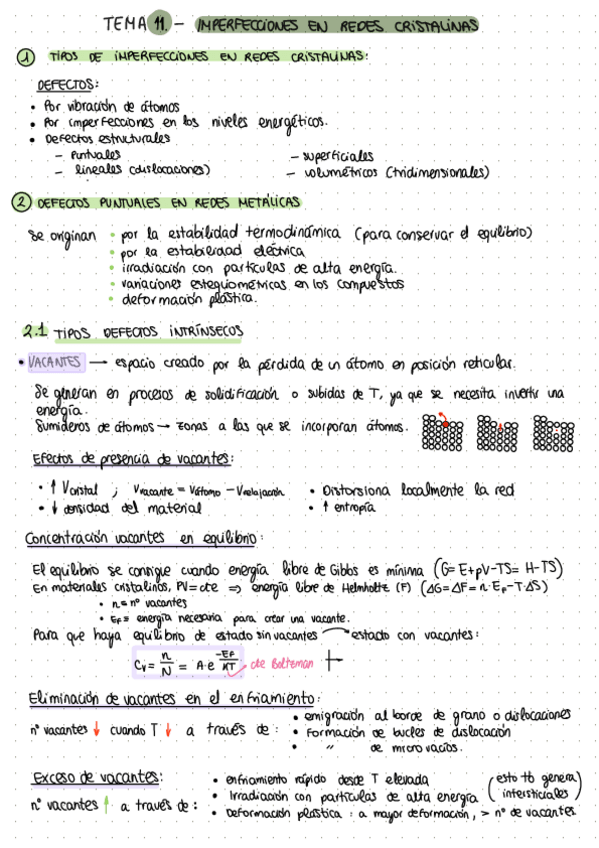 TEMA 11.- IMPERFECCIONES EN REDES CRISTALINAS
1 TIPOS DE IMPERFECCIONES EN REDES CRISTALINAS:
DEFECTOS:
• Por vibración de átomos
• Por imperfecciones en los niveles energéticos.
• Defectos estructurales
– Puntuales – superficiales
– lineales (dislocaciones) – volumétricos (tridimensionales)
2 DEFECTOS PUNTUALES EN REDES METÁLICAS
Se originan • por la estabilidad termodinámica (para conservar el equilibrio)
• por la estabilidad eléctrica
• irradiación con partículas de alta energía.
• variaciones estequiométricas en los compuestos
• deformación plástica.
2.1 TIPOS DEFECTOS INTRÍNSECOS
• VACANTES → espacio creado por la pérdida de un átomo en posición reticular.
Se generan en procesos de solidificación o subidas de T, ya que se necesita invertir una
energía.
Sumideros de átomos → zonas a las que se incorporan átomos.
Efectos de presencia de vacantes:
• ↑ Vcristal ; Vvacante = Vátomo – Vrelajación • Distorsiona localmente la red
• ↓ densidad del material • ↑ entropía
Concentración vacantes en equilibrio:
El equilibrio se consigue cuando energía libre de Gibbs es mínima (G= E+pV-TS= H-TS)
En materiales cristalinos, PV=cte ⇒ energía libre de Helmholtz (F) (ΔG=ΔF= n·EF-T·ΔS)
• n = nº vacantes
• EF = energía necesaria para crear una vacante.
Para que haya equilibrio de estado sin vacantes → estado con vacantes:
Cv = n/N = A·e -EF/KT de Boltzman
Eliminación de vacantes en el enfriamiento:
• emigración al borde de grano o dislocaciones
nº vacantes ↓ cuando T ↓ a través de : • Formación de bucles de dislocación
• " de micro vacíos.
Exceso de vacantes: • enfriamiento rápido desde T elevada (esto tb genera
• Irradiación con partículas de alta energía intersticiales)
nº vacantes ↑ a través de : • Deformación plástica : a mayor deformación, > nº de vacantes